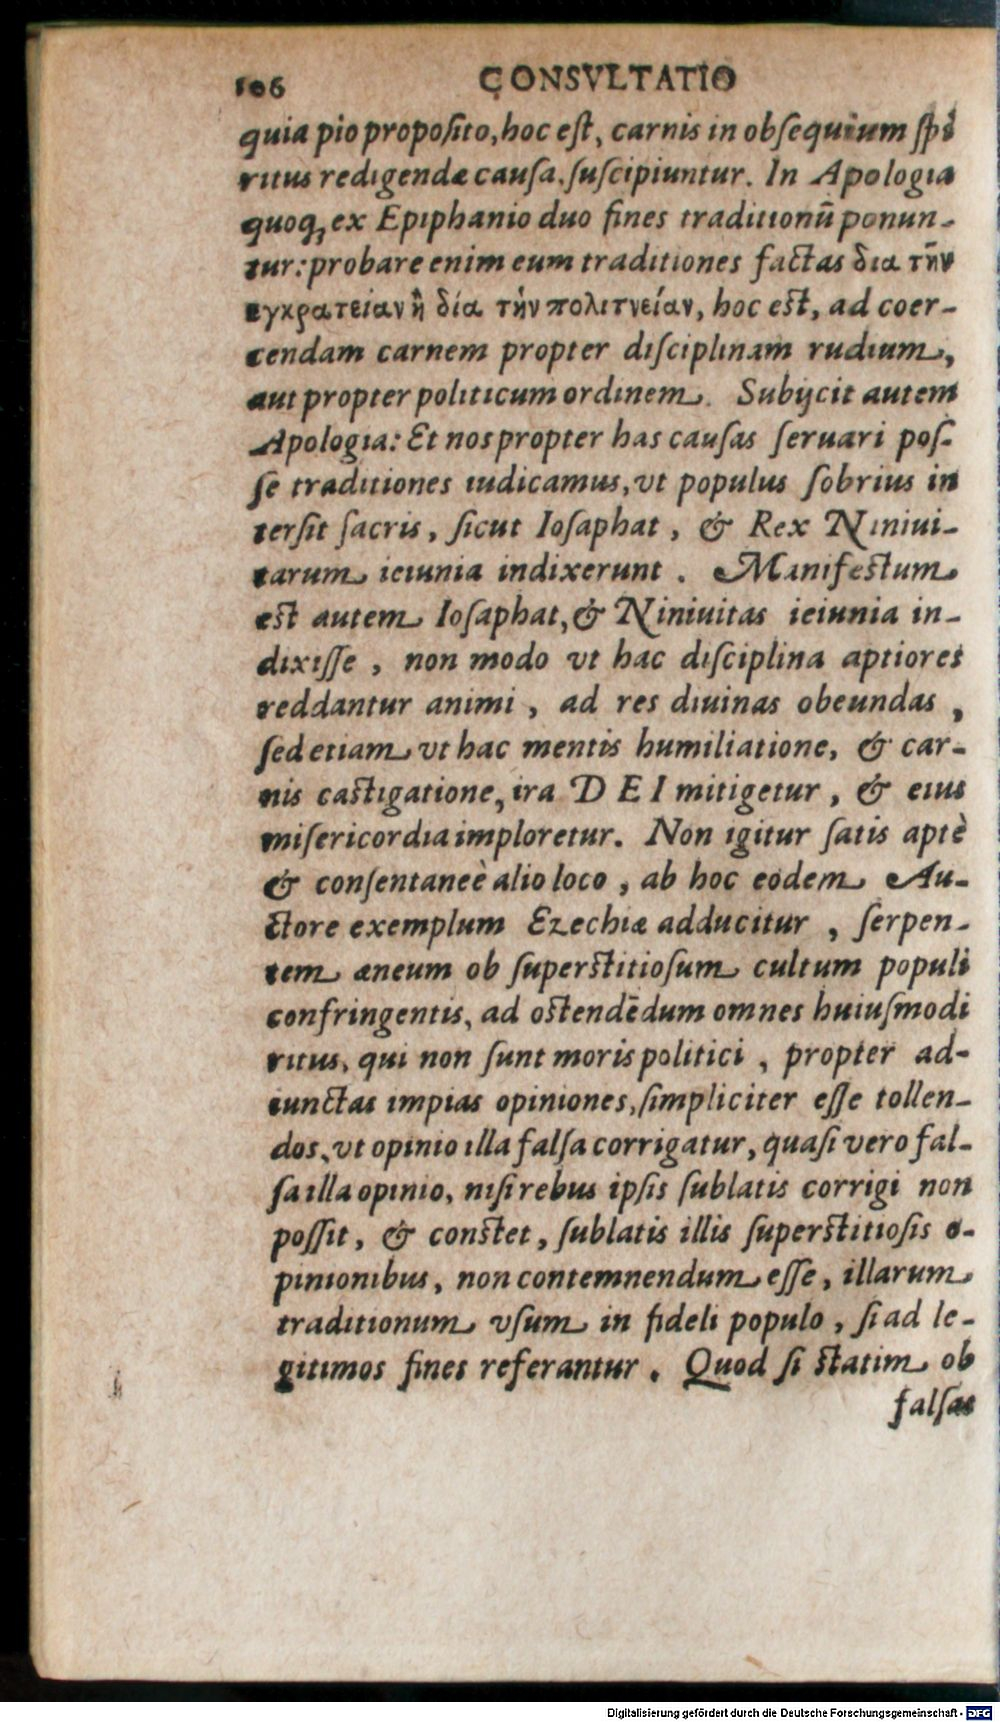 106 CONSVLTATIO
quia pio proposito, hoc est, carnis in obsequium spi
ritus redigendæ causa, suscipiuntur. In Apologia
quoq; ex Epiphanio duo fines traditionū ponun-
tur: probare enim eum traditiones factas δια τὴν
εγκρατειαν ἢ δία τὴν πολιτνείαν, hoc est, ad coer-
cendam carnem propter disciplinam rudium,
aut propter politicum ordinem. Subijcit autem
Apologia: Et nos propter has causas seruari pos-
se traditiones iudicamus, vt populus sobrius in
tersit sacris, sicut Iosaphat, & Rex Niniui-
tarum ieiunia indixerunt. Manifestum
est autem Iosaphat, & Niniuitas ieiunia in-
dixisse, non modo vt hac disciplina aptiores
reddantur animi, ad res diuinas obeundas,
sed etiam vt hac mentis humiliatione, & car-
nis castigatione, ira DEI mitigetur, & eius
misericordia imploretur. Non igitur satis aptè
& consentaneè alio loco, ab hoc eodem Au-
ctore exemplum Ezechiæ adducitur, serpen-
tem æneum ob superstitiosum cultum populi
confringentis, ad ostendēdum omnes huiusmodi
ritus, qui non sunt moris politici, propter ad-
iunctas impias opiniones, simpliciter esse tollen-
dos, vt opinio illa falsa corrigatur, quasi vero fal-
sa illa opinio, nisi rebus ipsis sublatis corrigi non
possit, & constet, sublatis illis superstitiosis o-
pinionibus, non contemnendum esse, illarum
traditionum vsum in fideli populo, si ad le-
gitimos fines referantur. Quod si statim ob
falsas
Digitalisierung gefördert durch die Deutsche Forschungsgemeinschaft - DFG